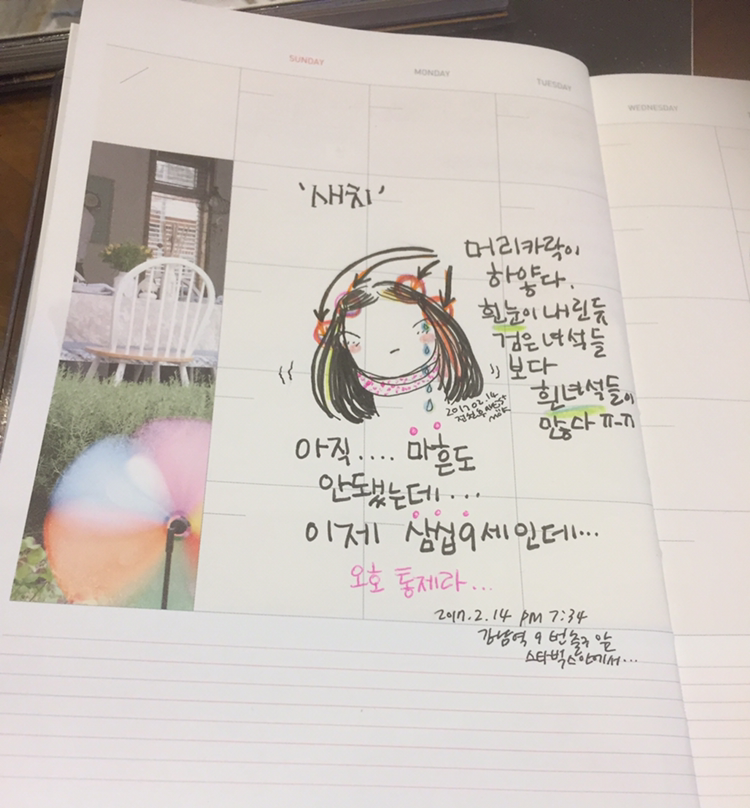 SUNDAY
MONDAY
TUESDAY
WEDNESDAY
'새치'
머리카락이
하얗다.
흰눈이 내린듯
검은 녀석들
보다
흰녀석들이
많다 ㅠ-ㅠ
2017.02.14
아직.... 마흔도
안됐는데...
이제 삼십9세인데...
오호 통제라...
2017.2.14 PM 7:34
강남역 9번출구 앞
스타벅스안에서...